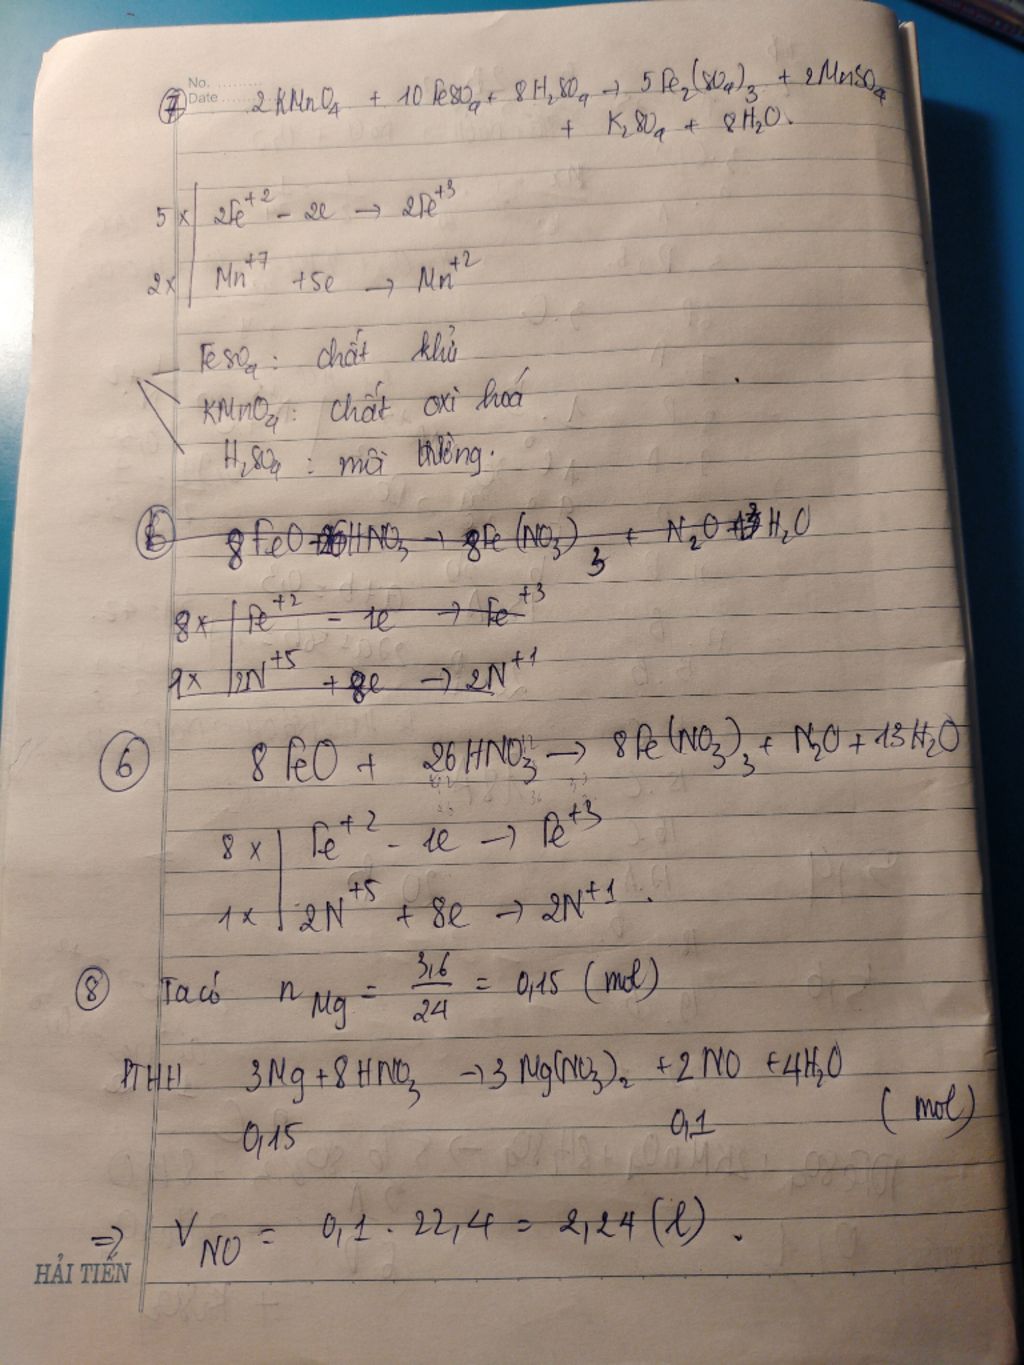 No. ............
Date ......
⑦ 2KMnO₄ + 10FeSO₄ + 8H₂SO₄ → 5Fe₂(SO₄)₃ + 2MnSO₄
+ K₂SO₄ + 8H₂O.
5 x | 2Fe⁺² - 2e → 2Fe⁺³
2 x | Mn⁺⁷ + 5e → Mn⁺²
FeSO₄: chất khử
KMnO₄: chất oxi hoá
H₂SO₄: môi trường.
⑥ 8FeO + 26HNO₃ → 8Fe(NO₃)₃ + N₂O + 13H₂O
8 x | Fe⁺² - 1e → Fe⁺³
1 x | 2N⁺⁵ + 8e → 2N⁺¹
⑥ 8FeO + 26HNO₃ → 8Fe(NO₃)₃ + N₂O + 13H₂O
8 x | Fe⁺² - 1e → Fe⁺³
1 x | 2N⁺⁵ + 8e → 2N⁺¹.
⑧ Ta có n Mg = 3,6/24 = 0,15 (mol)
PTHH 3Mg + 8HNO₃ → 3Mg(NO₃)₂ + 2NO + 4H₂O
0,15 0,1 (mol)
=> V NO = 0,1 . 22,4 = 2,24 (l).
HẢI TIẾN